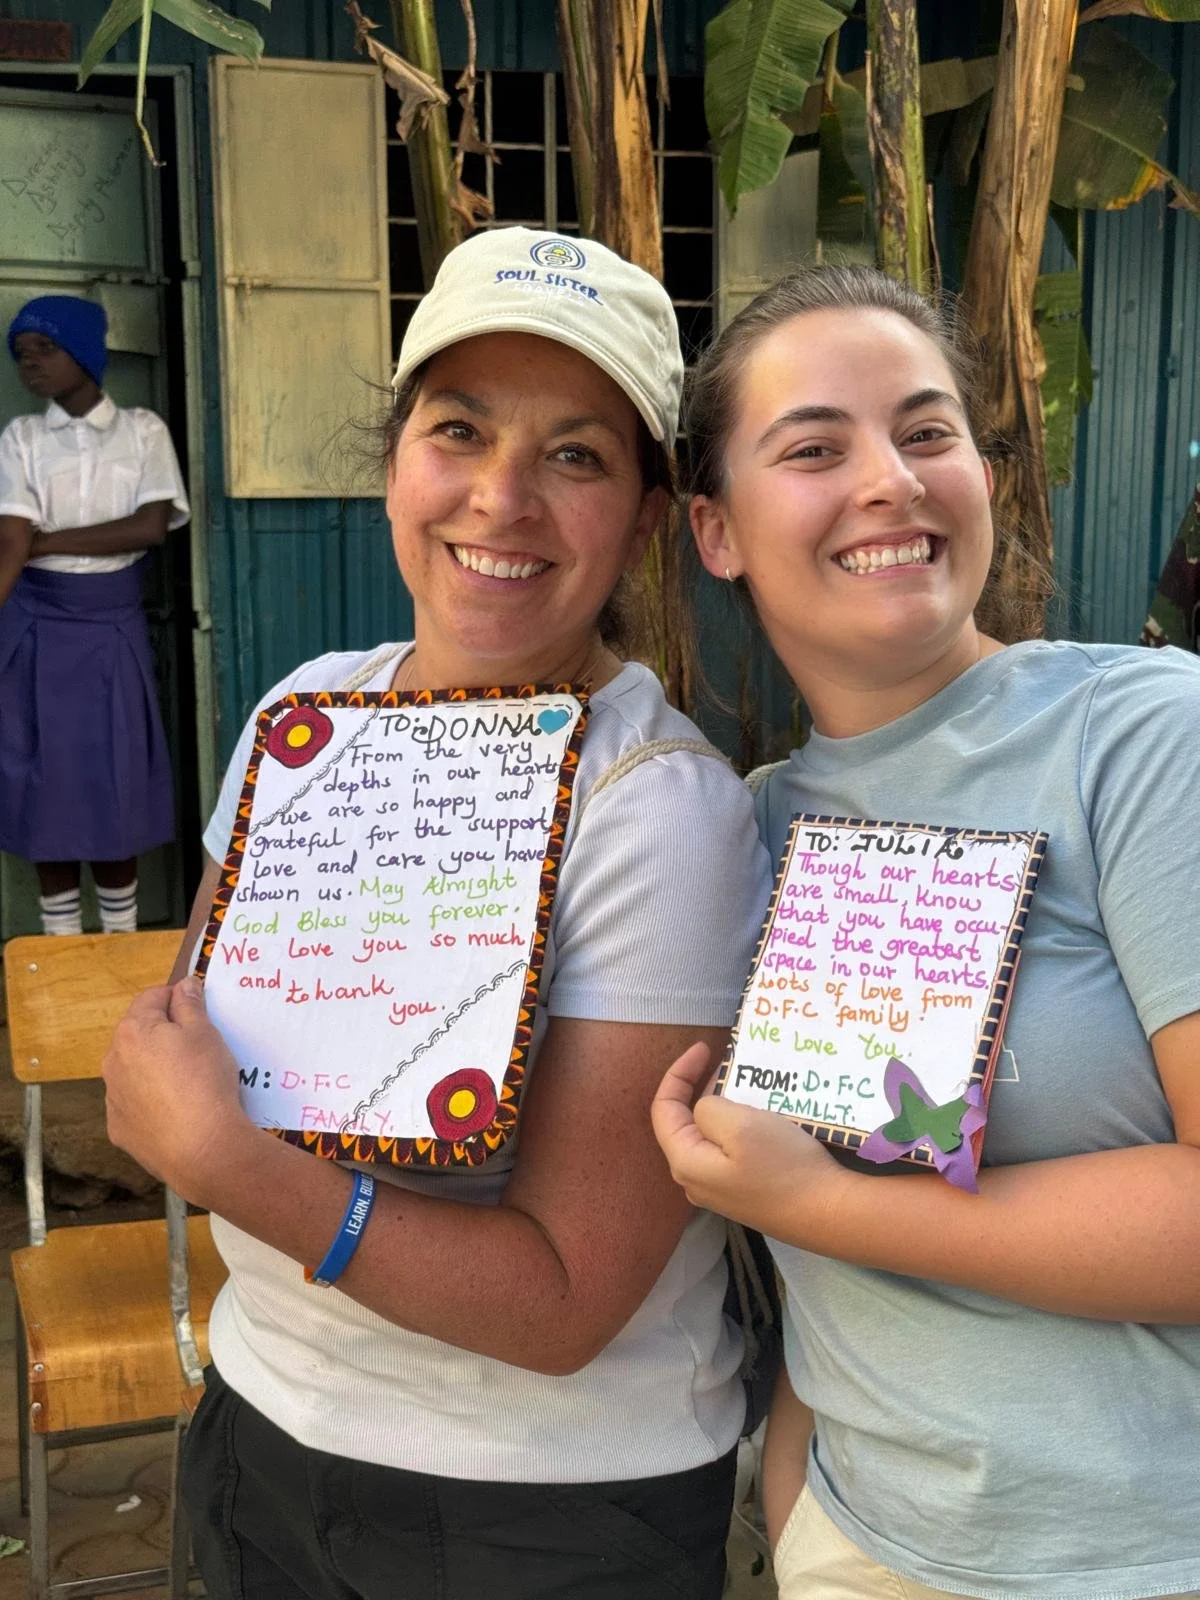 SOUL SISTER
TRAVELS
Director
Ashley
Deputy
TO: DONNA
From the very
depths in our hearts
we are so happy and
grateful for the support,
love and care you have
shown us. May Almight
God Bless you forever.
We love you so much
and thank
you.
M: D.F.C
FAMILY.
LEARN. BUI
TO: JULIA
Though our hearts
are small, know
that you have occu-
pied the greatest
space in our hearts.
Lots of love from
D.F.C family.
We Love You.
FROM: D.F.C
FAMILY.